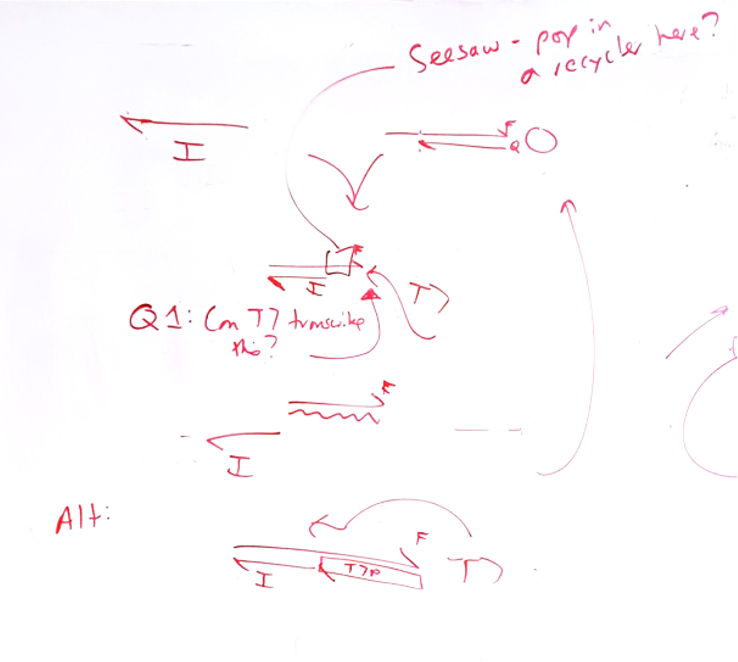 Seesaw - pop in
a recycler here?
I
F
Q
F
I
T7
Q1: Can T7 transcribe
this?
F
I
Alt:
F
T7P
T7
I